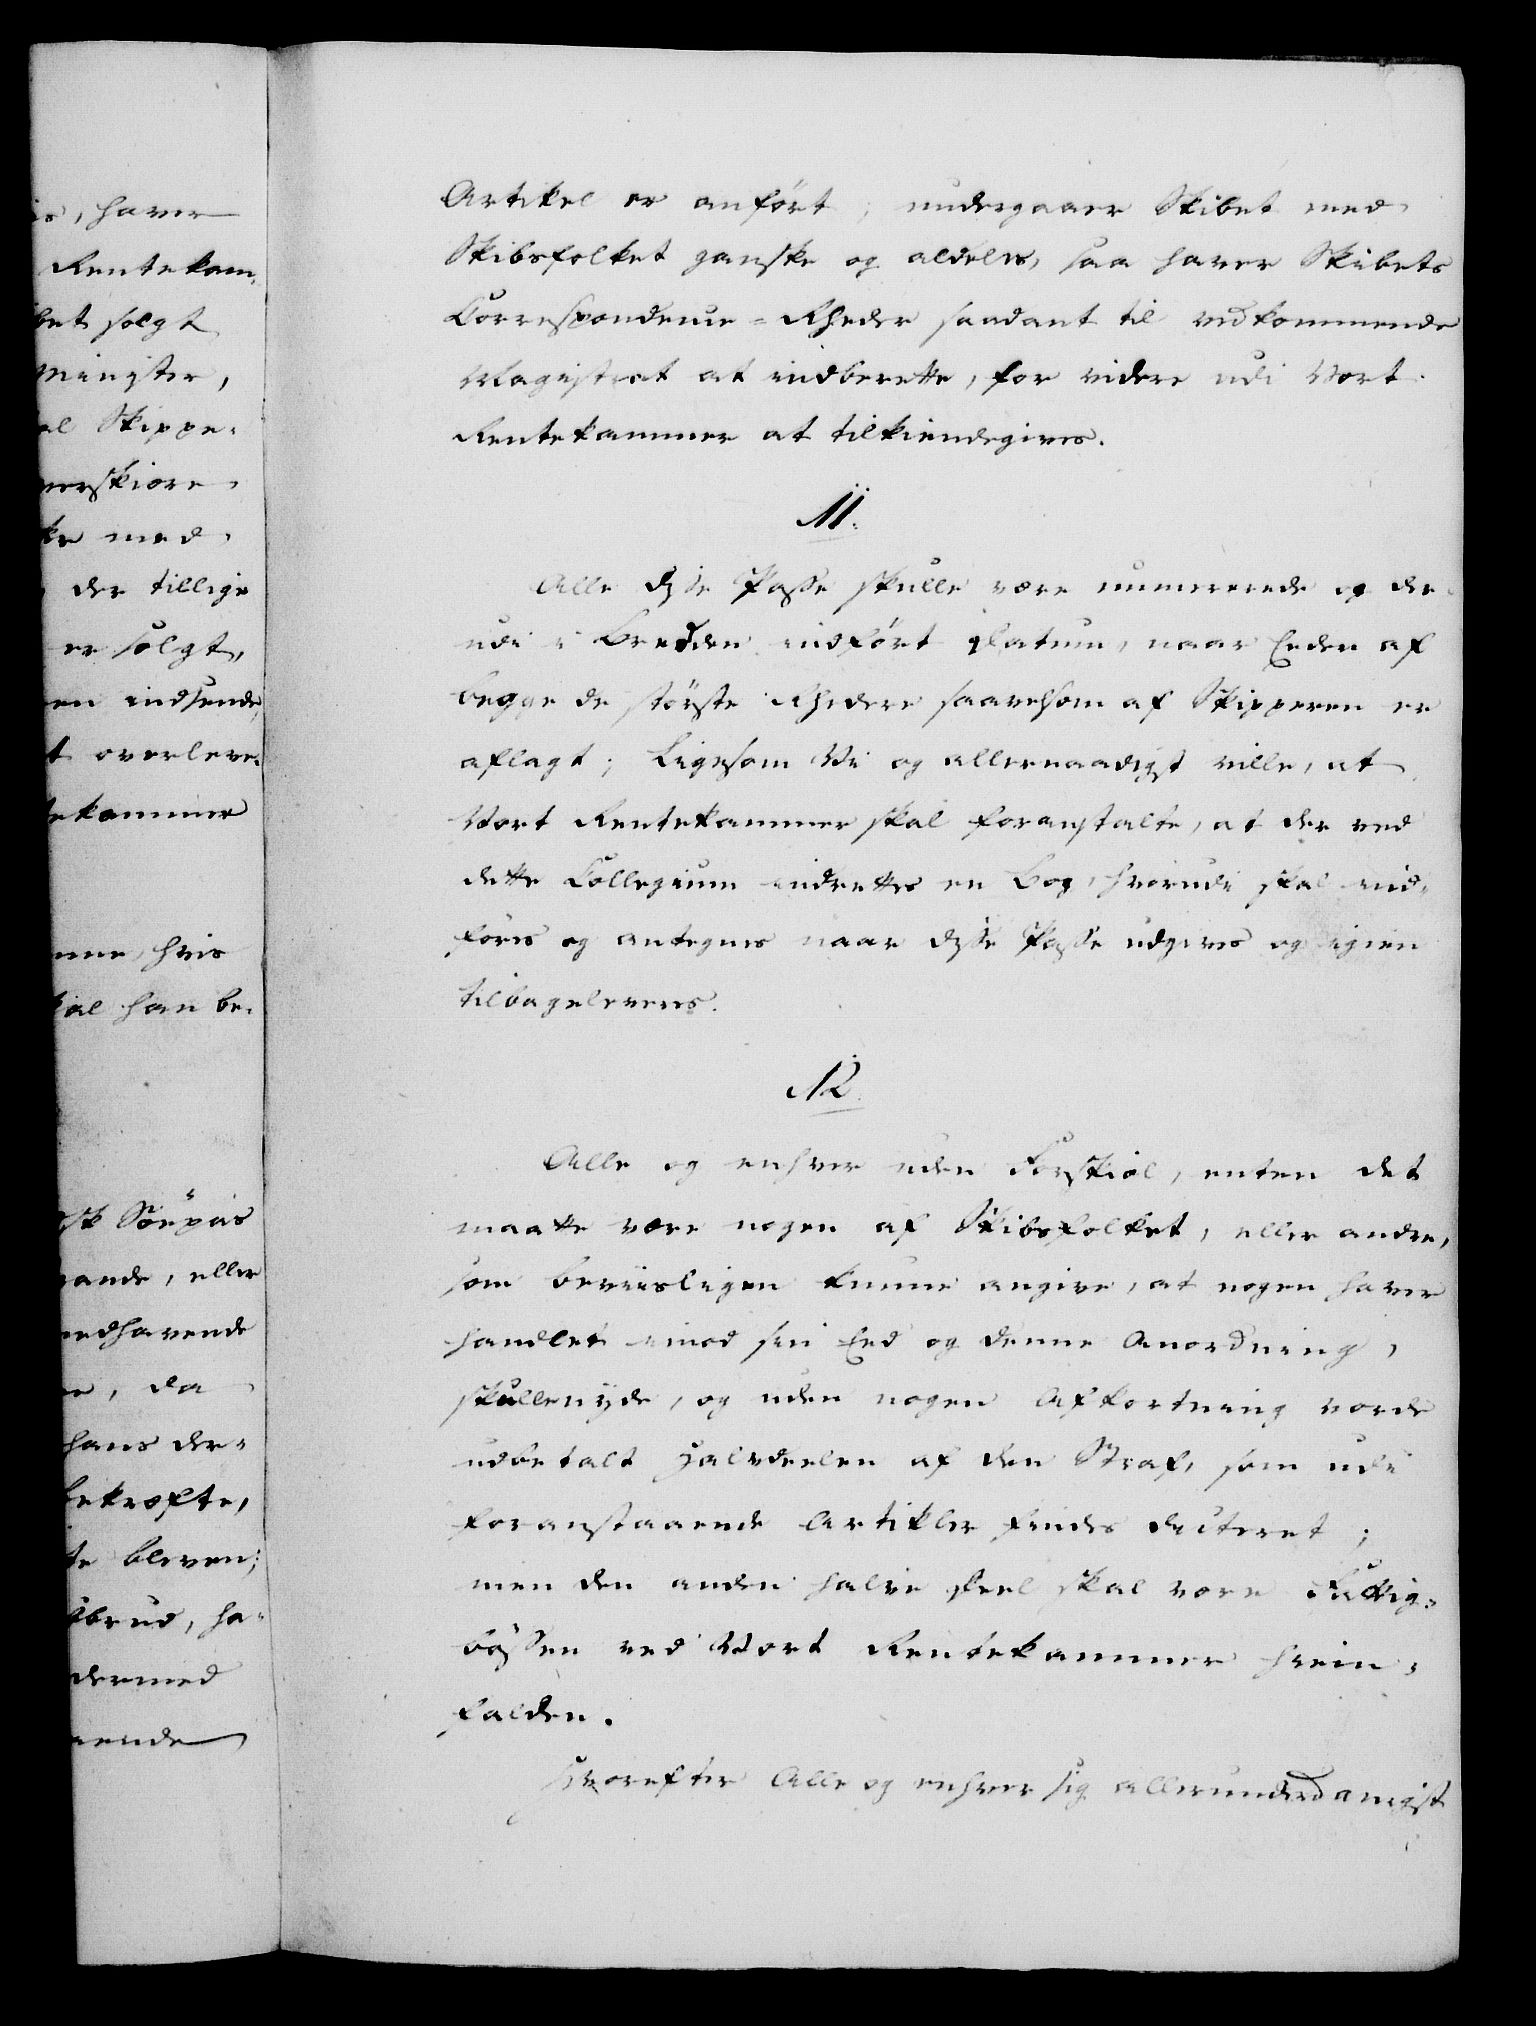 is, haver
Rentekam-
bet solgt
Minister,
al Skippe-
verskiore
ke med
der tillige
er solgt,
en indsende,
t overleve-
tekammer
hvis
kal han be-
sk Söepas
ande, eller
medhavende
e, da
hans der-
bekræfte,
te bleven;
dbrud, ha-
dermed
ende
Artikel er anfört; undergaaer Skibet med
Skibsfolket ganske og aldeles, saa haver Skibets
Correspondence-Rheder saadant til vedkommende
Magistrat at indberette, for videre udi Vort
Rentekammer at tilkiendegives.
11.
Alle disse Passe skulle være numererede og der-
udi i Bredden indfört Datum, naar Eeden af
begge de störste Rhedere saavelsom af Skipperen er
aflagt; Ligesom Vi og allernaadigst ville, at
Vort Rentekammer skal foranstalte, at der ved
dette Collegium indrettes en Bog, hvorudi skal ind-
föres og antegnes naar disse Passe udgives og igien
tilbageleveres.
12.
Alle og enhver uden Forskiæl, enten det
maatte være nogen af Skibsfolket, eller andre,
som beviisligen kunne angive, at nogen haver
handlet imod sin Eed og denne Anordning,
skulle nyde, og uden nogen Afkortning vorde
udbetalt Halvdeelen af den Straf, som udi
foranstaaende Artikler findes dicteret;
men den anden halve Deel skal være Fattig-
bössen ved Vort Rentekammer hiem-
falden.
Hvorefter Alle og enhver sig allerunderdanigst